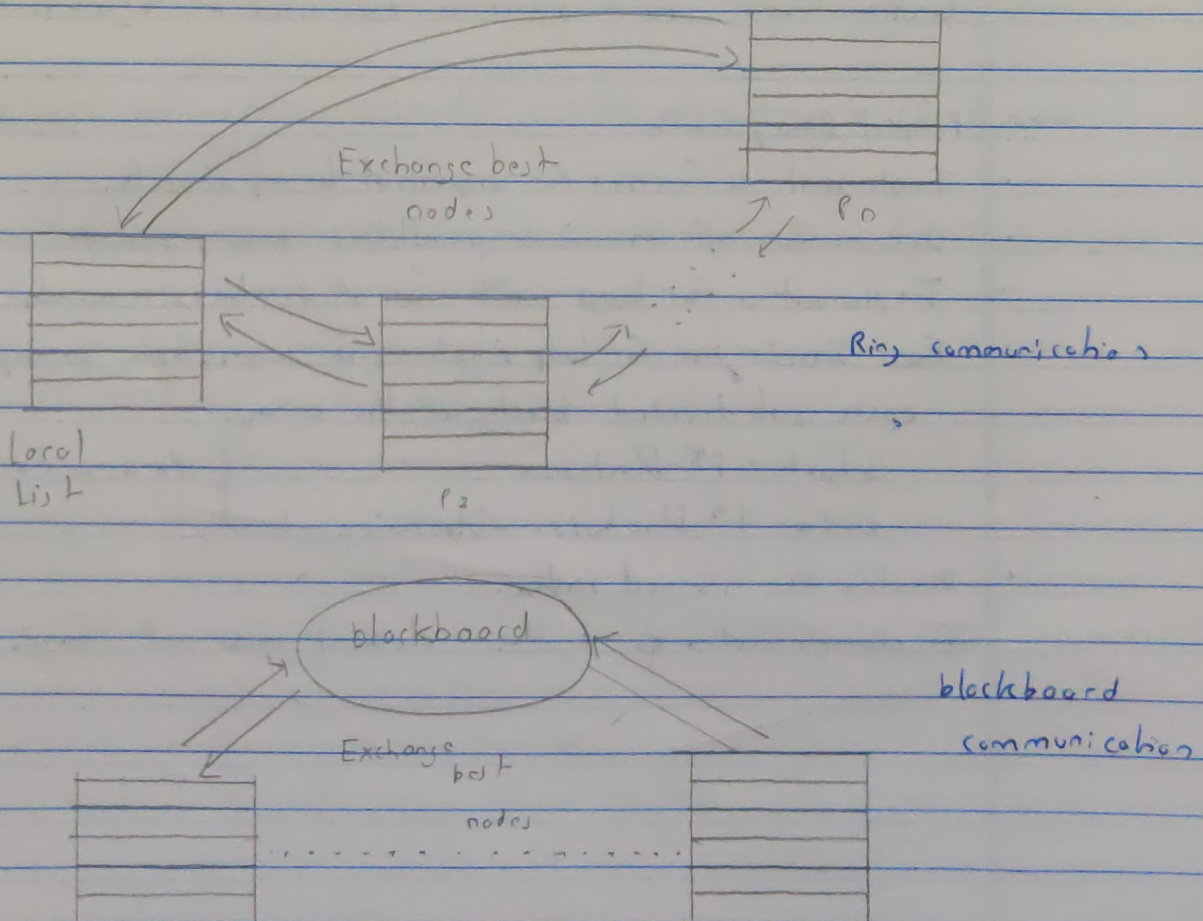 Exchange best
nodes
Pn
Ring communication
Local
List
P2
blackboard
blackboard
communication
Exchange
best
nodes